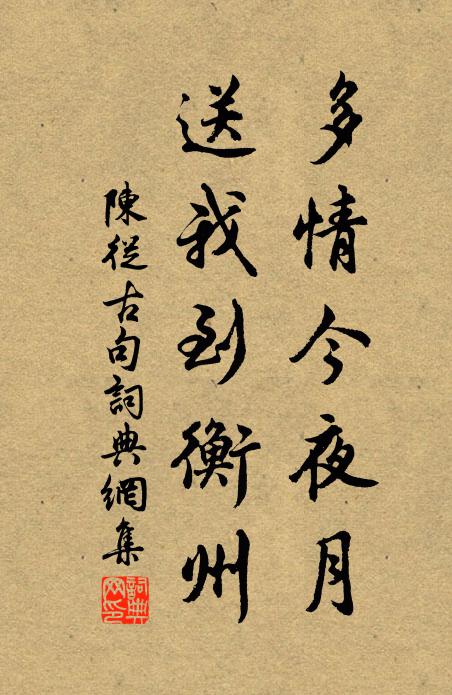 多情今夜月
送我到衡州
陳從古句詞典網集
詞典網印